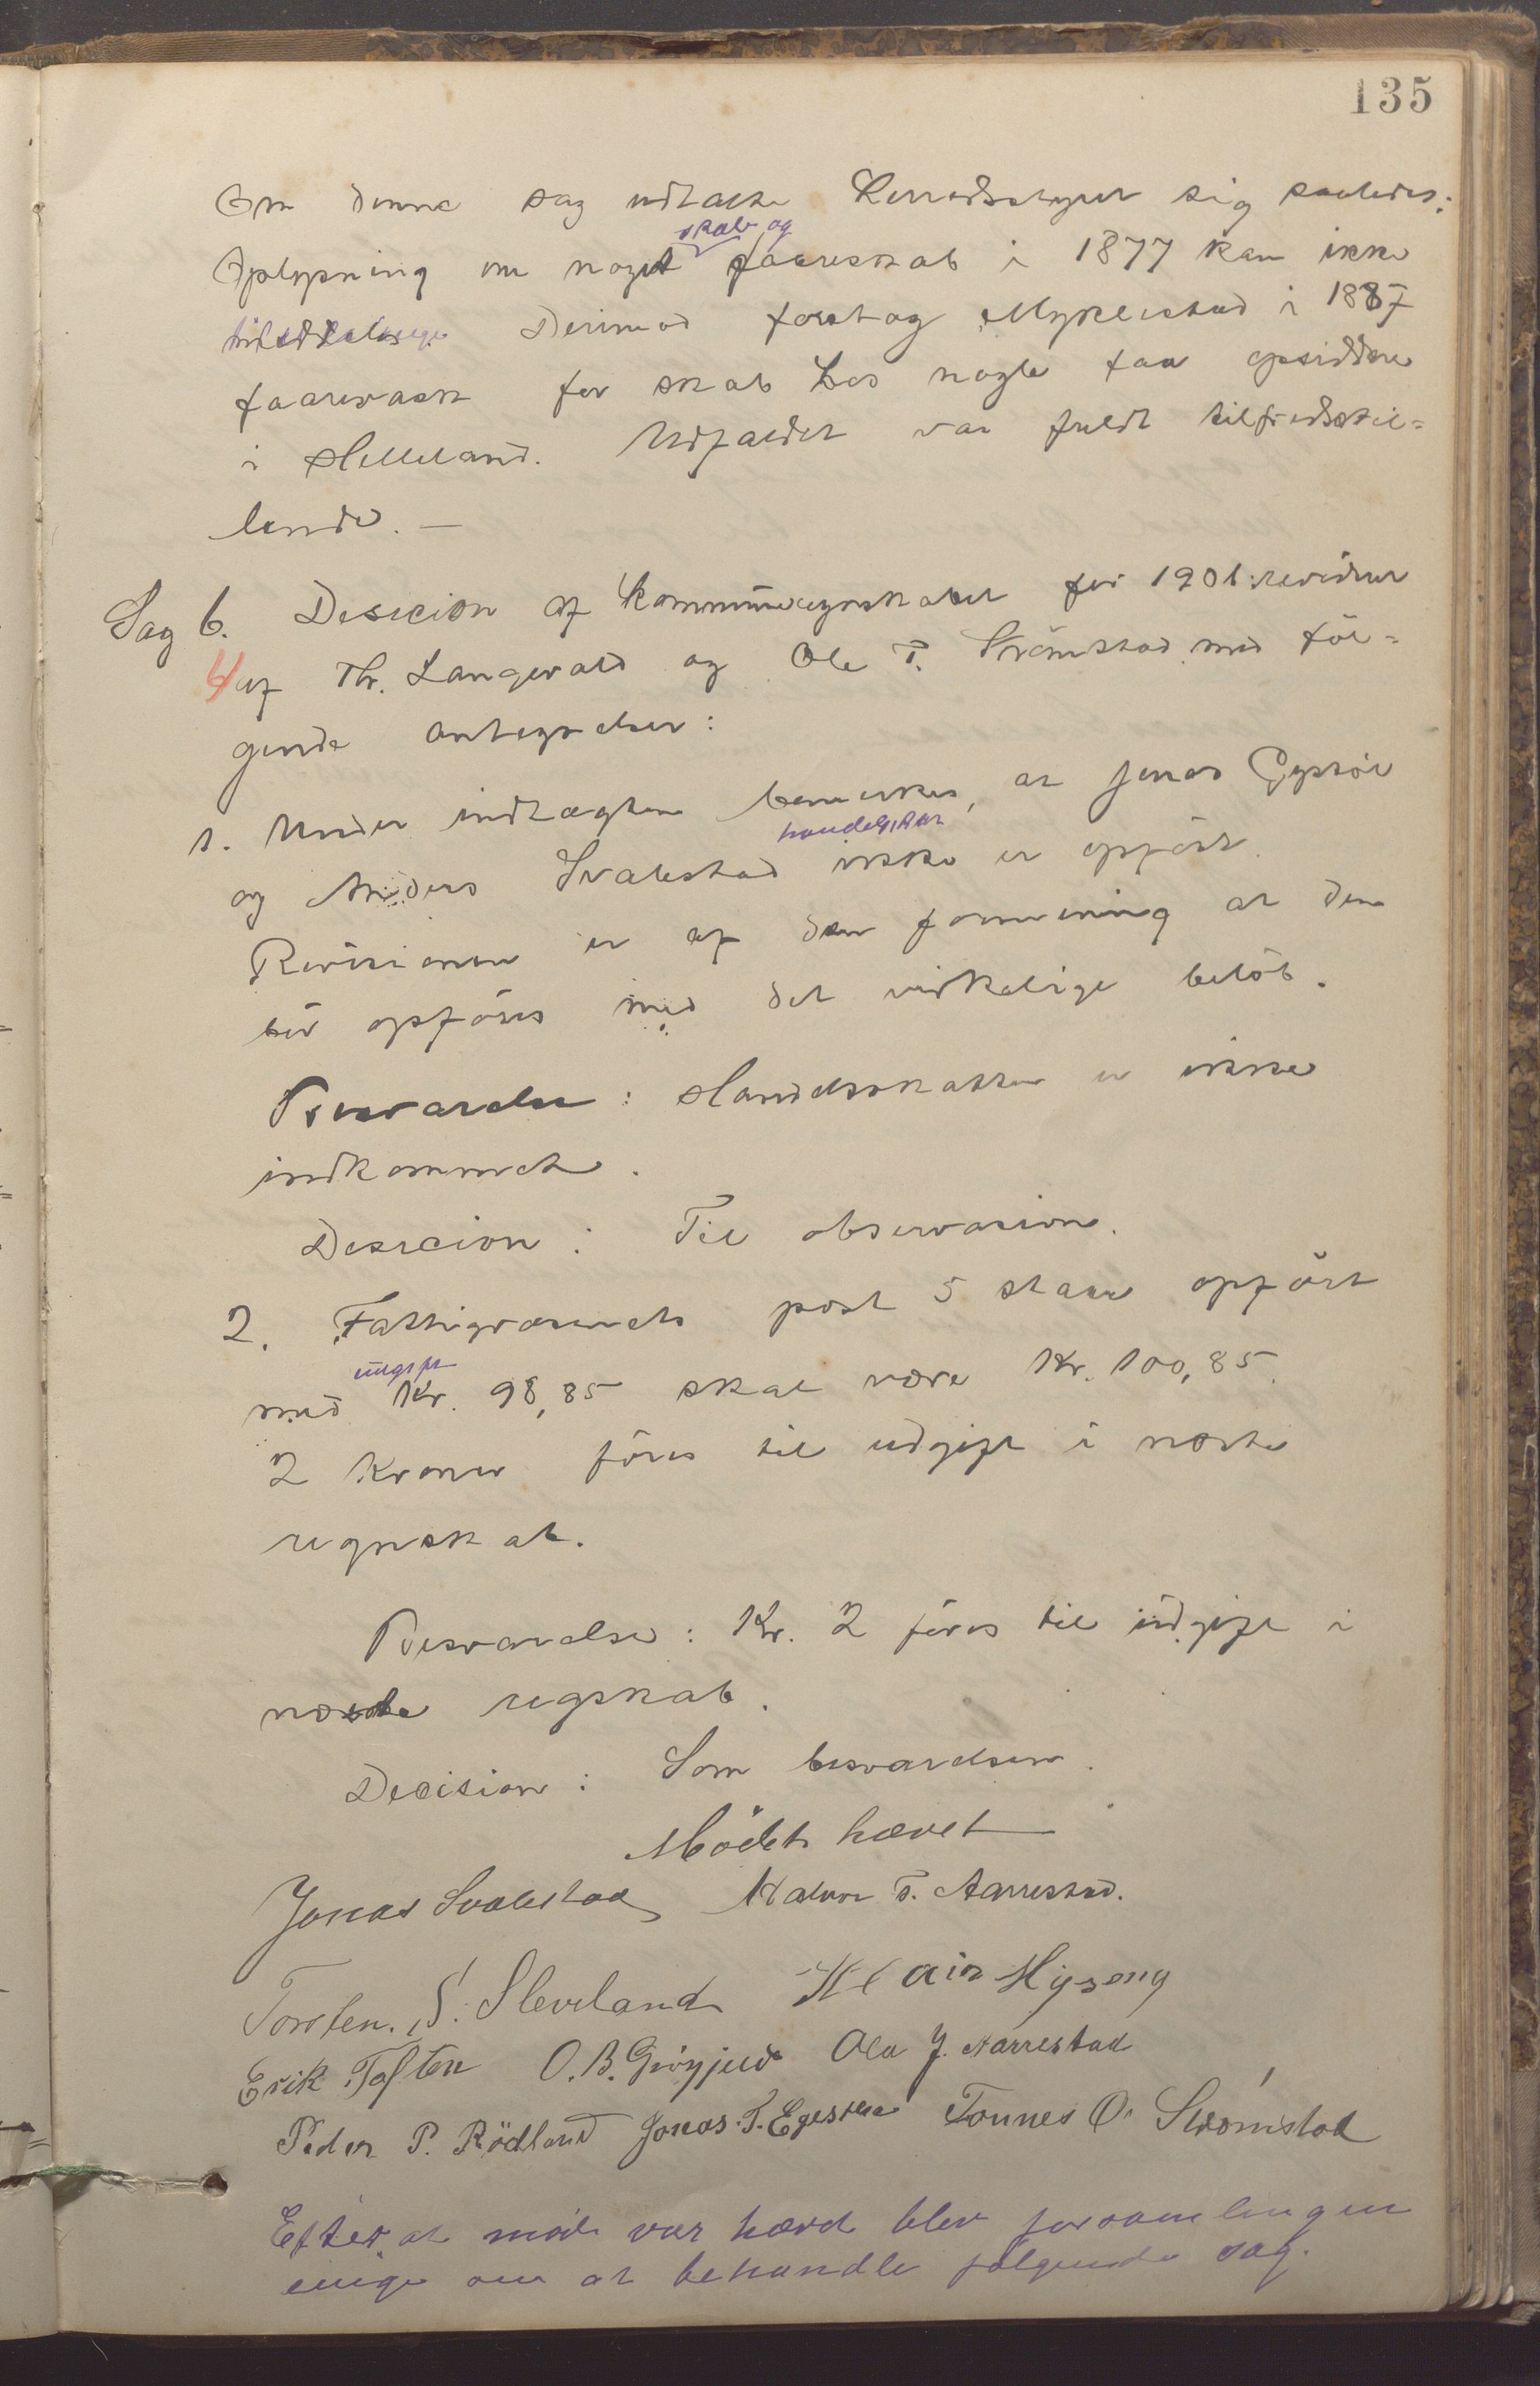 135
Om denne sag udtalte Herredsstyret sig saaledes:
skab og
Oplysning om noget faareskab i 1877 kan ikke
Derimod foretog Myklestad i 1887
faarevask for skab hos nogle faa opsiddere
i Helleland. Udfaldet var fuldt tilfredsstil=
lende. —
Sag 6. Desicion af kommuneregnskabet for 1901 revideret
4 af Th. Langevald og Ole T. Strömstad med föl=
gende antegnelser:
1. Under indtægten bemerkes, at Jonas Gystöl
handelsskat
og Anders Svalestad ikke er opfört.
Revisionen er af den formening at den
bör opföres med det virkelige belöb.
Besvarelse: Handelsskatten er ikke
indkommet.
Desicion: Til observasion.
2. Fattigvæsenets post 5 staar opfört
udgift
med Kr. 98,85 skal være Kr. 100,85.
2 Kroner föres til udgift i næste
regnskab.
Besvarelse: Kr. 2 föres til udgift i
næste regskab.
Decision: Som besvarelsen.
Mödet hævet
Jonas Svalestad Halvor T. Aarrestad.
Torsten. S. Sleveland
Erik Toften O. B. Ola J. Aarrestad
Peder P. Rödland Jonas T. Tonnes O. Strömstad
Efter at möde var hævd blev forsamlingen
enige om at behandle følgende sag.